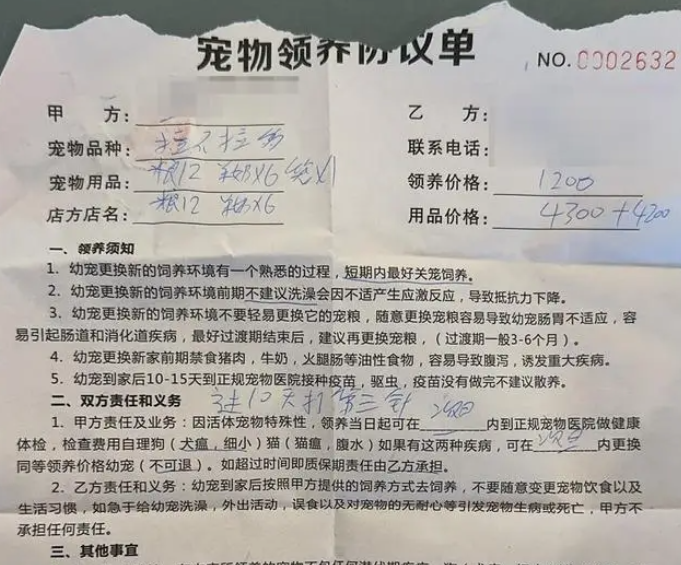 宠物领养协议单 NO.0002632
甲 方： 乙 方：
宠物品种：拉不拉多 联系电话：
宠物用品：粮12 羊奶x6 领养价格：1200
店方店名：粮12 羊奶x6 用品价格：4300+4200
一、领养须知
1. 幼宠更换新的饲养环境有一个熟悉的过程，短期内最好关笼饲养。
2. 幼宠更换新的饲养环境前期不建议洗澡会因不适产生应激反应，导致抵抗力下降。
3. 幼宠更换新的饲养环境不要轻易更换它的宠粮，随意更换宠粮容易导致幼宠肠胃不适应，容
易引起肠道和消化道疾病，最好过渡期结束后，建议再更换宠粮，（过渡期一般3-6个月）。
4. 幼宠更换新家前期禁食猪肉，牛奶，火腿肠等油性食物，容易导致腹泻，诱发重大疾病。
5. 幼宠到家后10-15天到正规宠物医院接种疫苗，驱虫，疫苗没有做完不建议散养。
二、双方责任和义务 过10天打第三针
1. 甲方责任及业务：因活体宠物特殊性，领养当日起可在次日内到正规宠物医院做健康
体检，检查费用自理狗（犬瘟，细小）猫（猫瘟，腹水）如果有这两种疾病，可在次日内更换
同等领养价格幼宠（不可退）。如超过时间即质保期责任由乙方承担。
2. 乙方责任和义务：幼宠到家后按照甲方提供的饲养方式去饲养，不要随意变更宠物饮食以及
生活习惯，如急于给幼宠洗澡，外出活动，误食以及对宠物的无耐心等引发宠物生病或死亡，甲方不
承担任何责任。
三、其他事宜